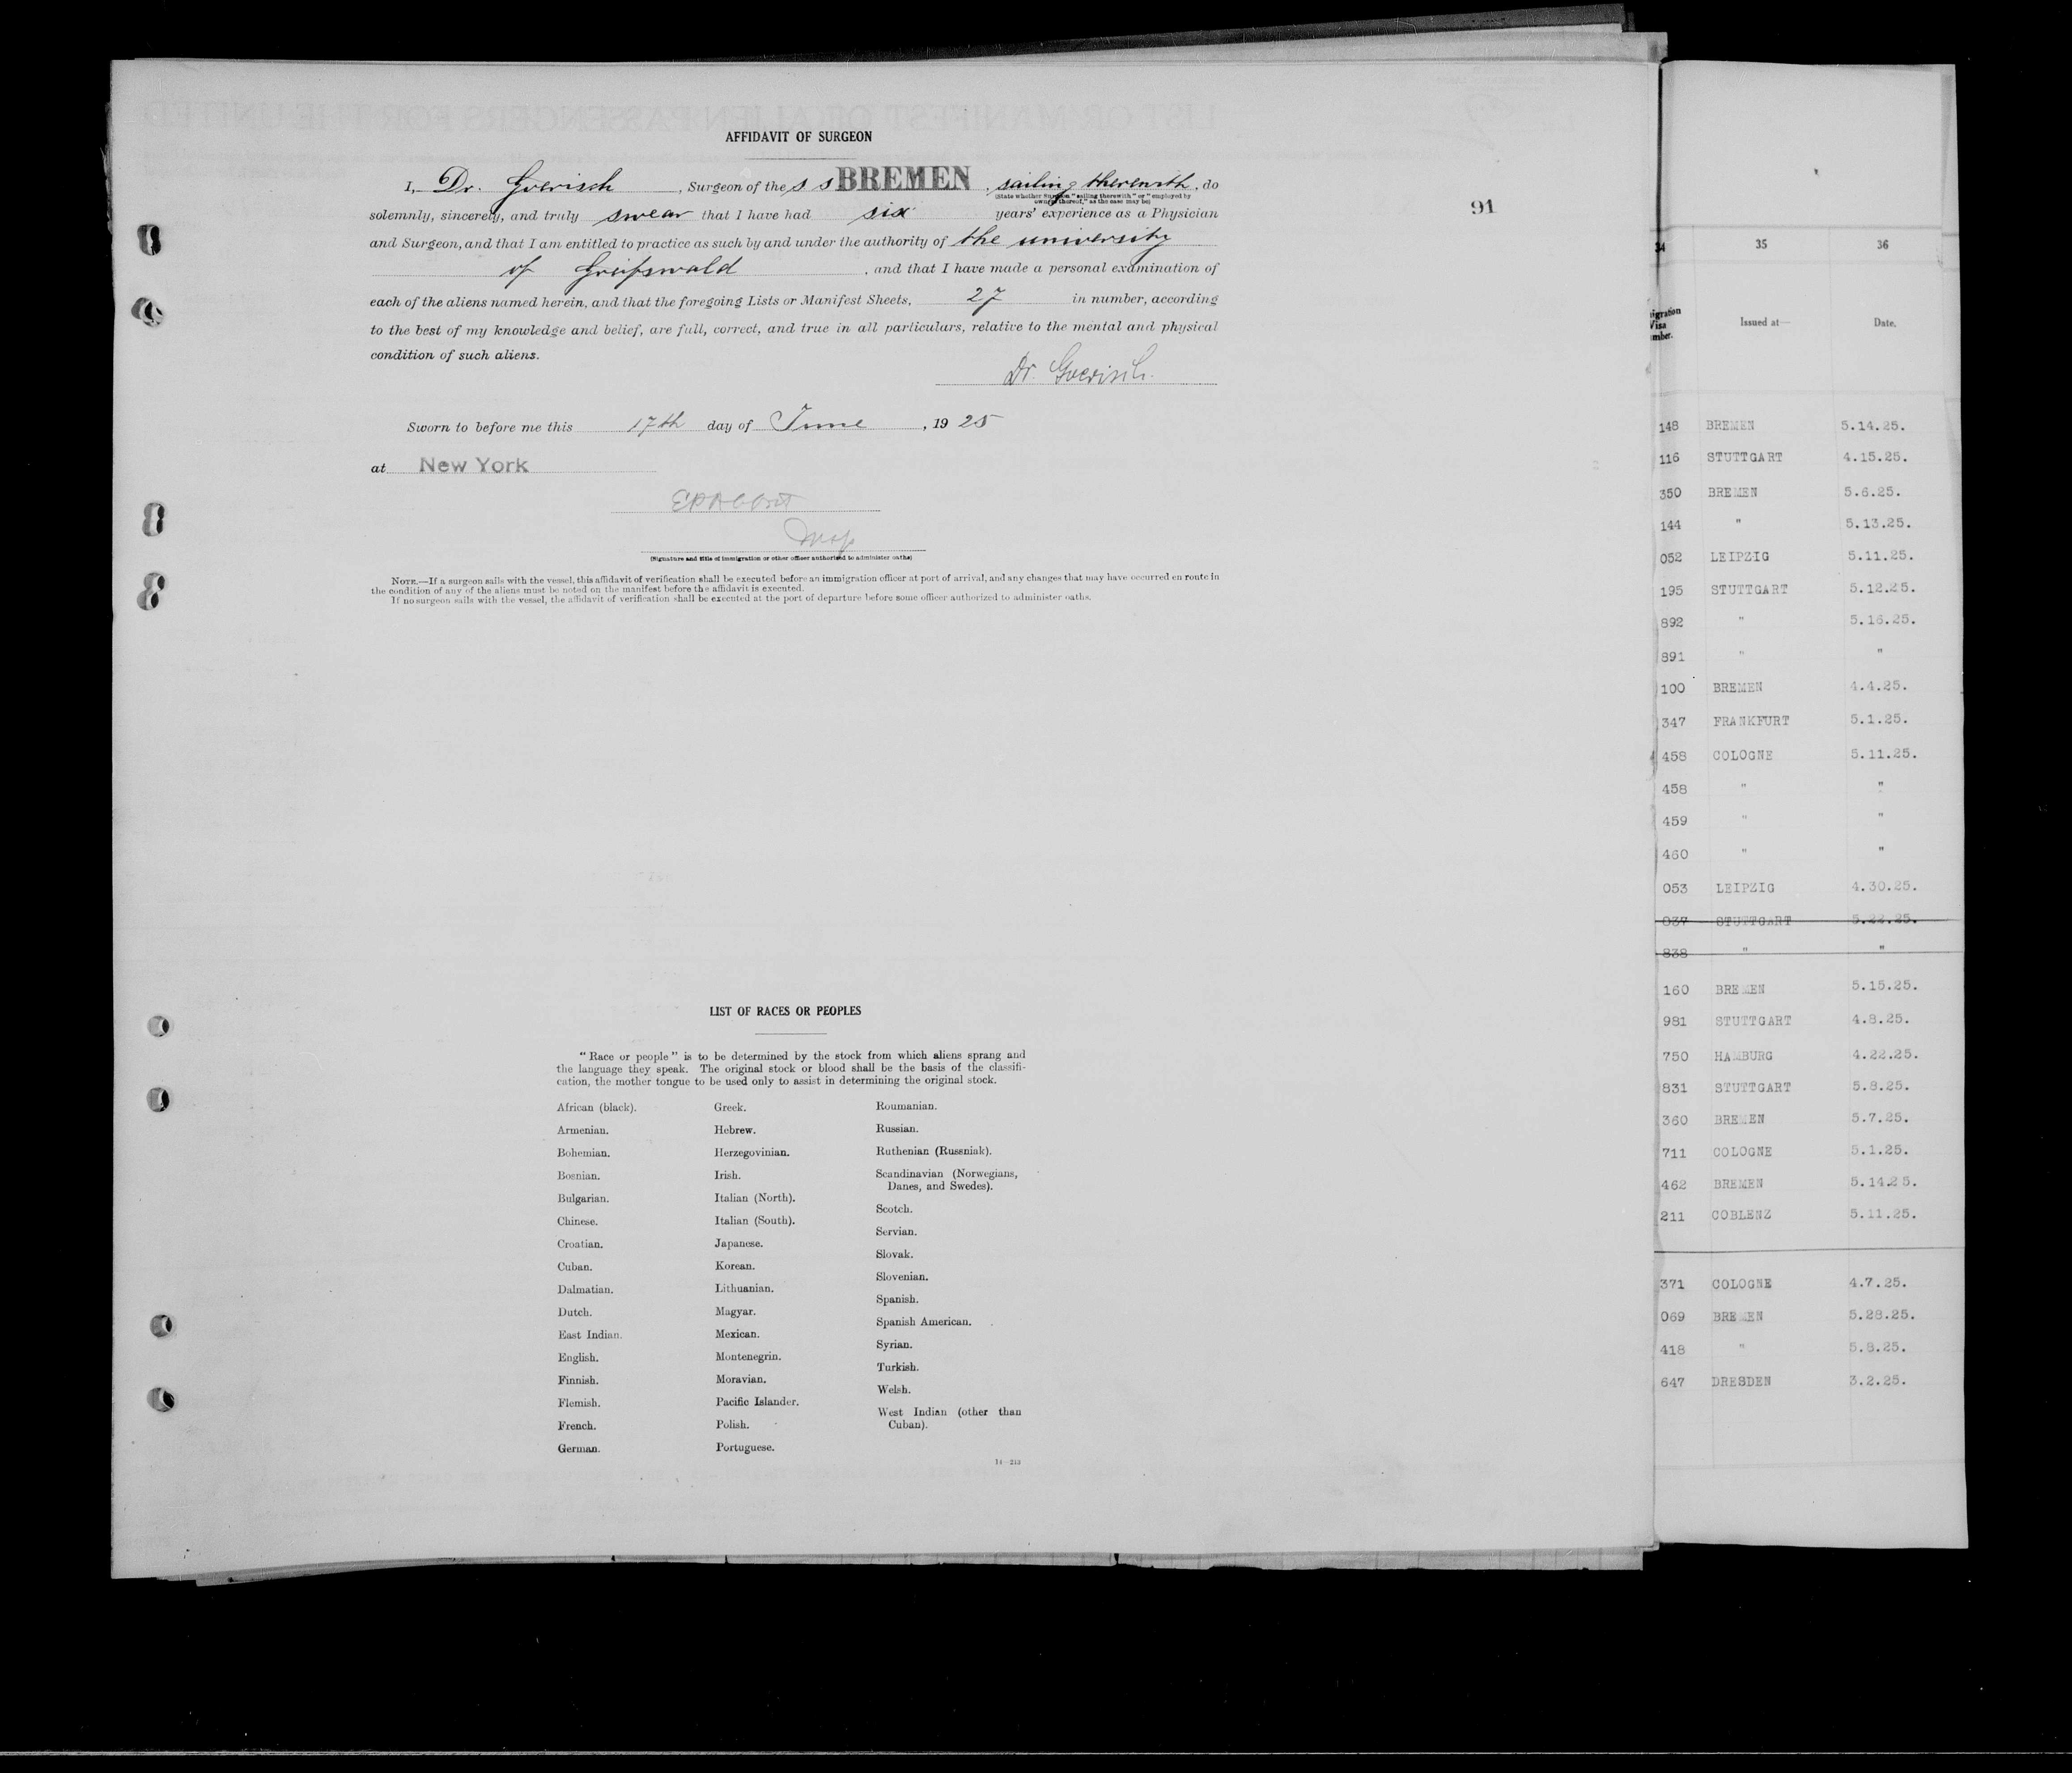 AFFIDAVIT OF SURGEON
I, Dr. Goerisch, Surgeon of the s s BREMEN, sailing therewith, do
(State whether Surgeon "sailing therewith" or "employed by
owners thereof," as the case may be)
solemnly, sincerely, and truly swear that I have had six years' experience as a Physician
and Surgeon, and that I am entitled to practice as such by and under the authority of the university
of Greifswald, and that I have made a personal examination of
each of the aliens named herein, and that the foregoing Lists or Manifest Sheets, 27 in number, according
to the best of my knowledge and belief, are full, correct, and true in all particulars, relative to the mental and physical
condition of such aliens.
Dr. Goerisch.
Sworn to before me this 17th day of June, 1925
at New York
(Signature and title of immigration or other officer authorized to administer oaths)
NOTE.—If a surgeon sails with the vessel, this affidavit of verification shall be executed before an immigration officer at port of arrival, and any changes that may have occurred en route in
the condition of any of the aliens must be noted on the manifest before the affidavit is executed.
If no surgeon sails with the vessel, the affidavit of verification shall be executed at the port of departure before some officer authorized to administer oaths.
91
LIST OF RACES OR PEOPLES
"Race or people" is to be determined by the stock from which aliens sprang and
the language they speak. The original stock or blood shall be the basis of the classifi-
cation, the mother tongue to be used only to assist in determining the original stock.
African (black).
Armenian.
Bohemian.
Bosnian.
Bulgarian.
Chinese.
Croatian.
Cuban.
Dalmatian.
Dutch.
East Indian.
English.
Finnish.
Flemish.
French.
German.
Greek.
Hebrew.
Herzegovinian.
Irish.
Italian (North).
Italian (South).
Japanese.
Korean.
Lithuanian.
Magyar.
Mexican.
Montenegrin.
Moravian.
Pacific Islander.
Polish.
Portuguese.
Roumanian.
Russian.
Ruthenian (Russniak).
Scandinavian (Norwegians,
Danes, and Swedes).
Scotch.
Servian.
Slovak.
Slovenian.
Spanish.
Spanish American.
Syrian.
Turkish.
Welsh.
West Indian (other than
Cuban).
14—213
34 35 36
igration
Visa
mber.
Issued at— Date.
148 BREMEN 5.14.25.
116 STUTTGART 4.15.25.
350 BREMEN 5.6.25.
144 " 5.13.25.
052 LEIPZIG 5.11.25.
195 STUTTGART 5.12.25.
892 " 5.16.25.
891 " "
100 BREMEN 4.4.25.
347 FRANKFURT 5.1.25.
458 COLOGNE 5.11.25.
458 " "
459 " "
460 " "
053 LEIPZIG 4.30.25.
837 STUTTGART 5.22.25.
838 " "
160 BREMEN 5.15.25.
981 STUTTGART 4.8.25.
750 HAMBURG 4.22.25.
831 STUTTGART 5.8.25.
360 BREMEN 5.7.25.
711 COLOGNE 5.1.25.
462 BREMEN 5.14.25.
211 COBLENZ 5.11.25.
371 COLOGNE 4.7.25.
069 BREMEN 5.28.25.
418 " 5.8.25.
647 DRESDEN 3.2.25.